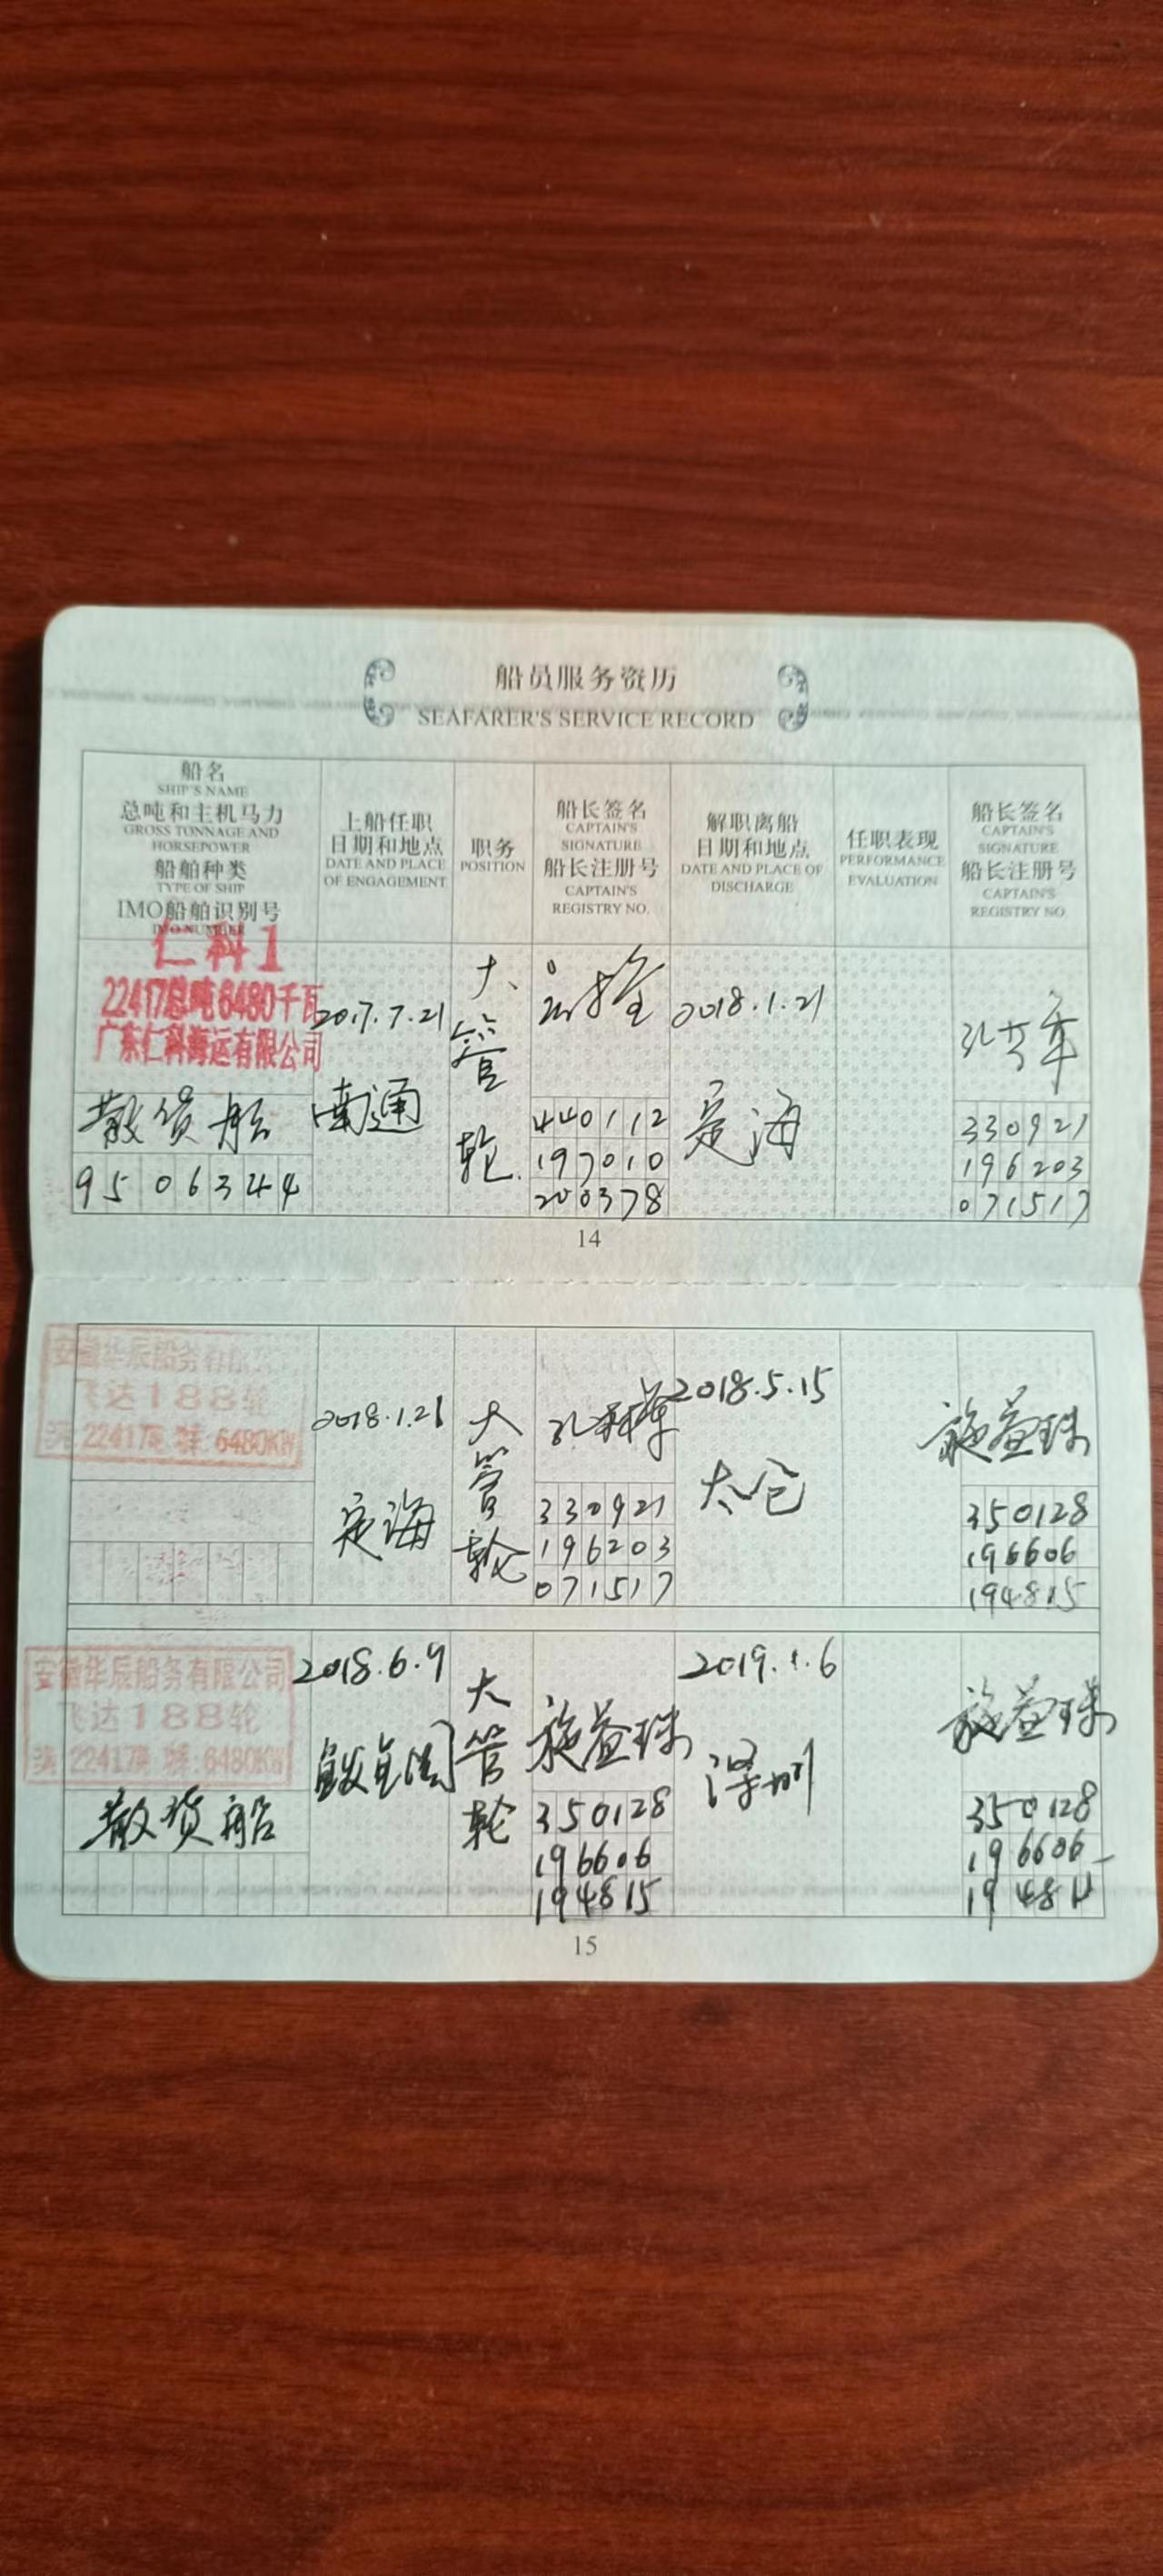 船员服务资历
SEAFARER'S SERVICE RECORD
船名
SHIP'S NAME
总吨和主机马力
GROSS TONNAGE AND
HORSEPOWER
船舶种类
TYPE OF SHIP
IMO船舶识别号
IMO NUMBER
上船任职
日期和地点
DATE AND PLACE
OF ENGAGEMENT
职务
POSITION
船长签名
CAPTAIN'S
SIGNATURE
船长注册号
CAPTAIN'S
REGISTRY NO.
解职离船
日期和地点
DATE AND PLACE OF
DISCHARGE
任职表现
PERFORMANCE
EVALUATION
船长签名
CAPTAIN'S
SIGNATURE
船长注册号
CAPTAIN'S
REGISTRY NO.
仁科1
22417总吨6480千瓦
广东仁科海运有限公司
散货船
9506344
2017.7.21
南通
大管轮
440112
197010
200378
2018.1.21
定海
330921
196203
071517
14
安徽华辰船务有限公司
飞达188轮
22417 6480KW
2018.1.21
定海
大管轮
330921
196203
071517
2018.5.15
太仓
施益珠
350128
196606
194815
安徽华辰船务有限公司
飞达188轮
22417 6480KW
散货船
2018.6.9
大管轮
施益珠
350128
196606
194815
2019.1.6
深圳
施益珠
350128
196606
15